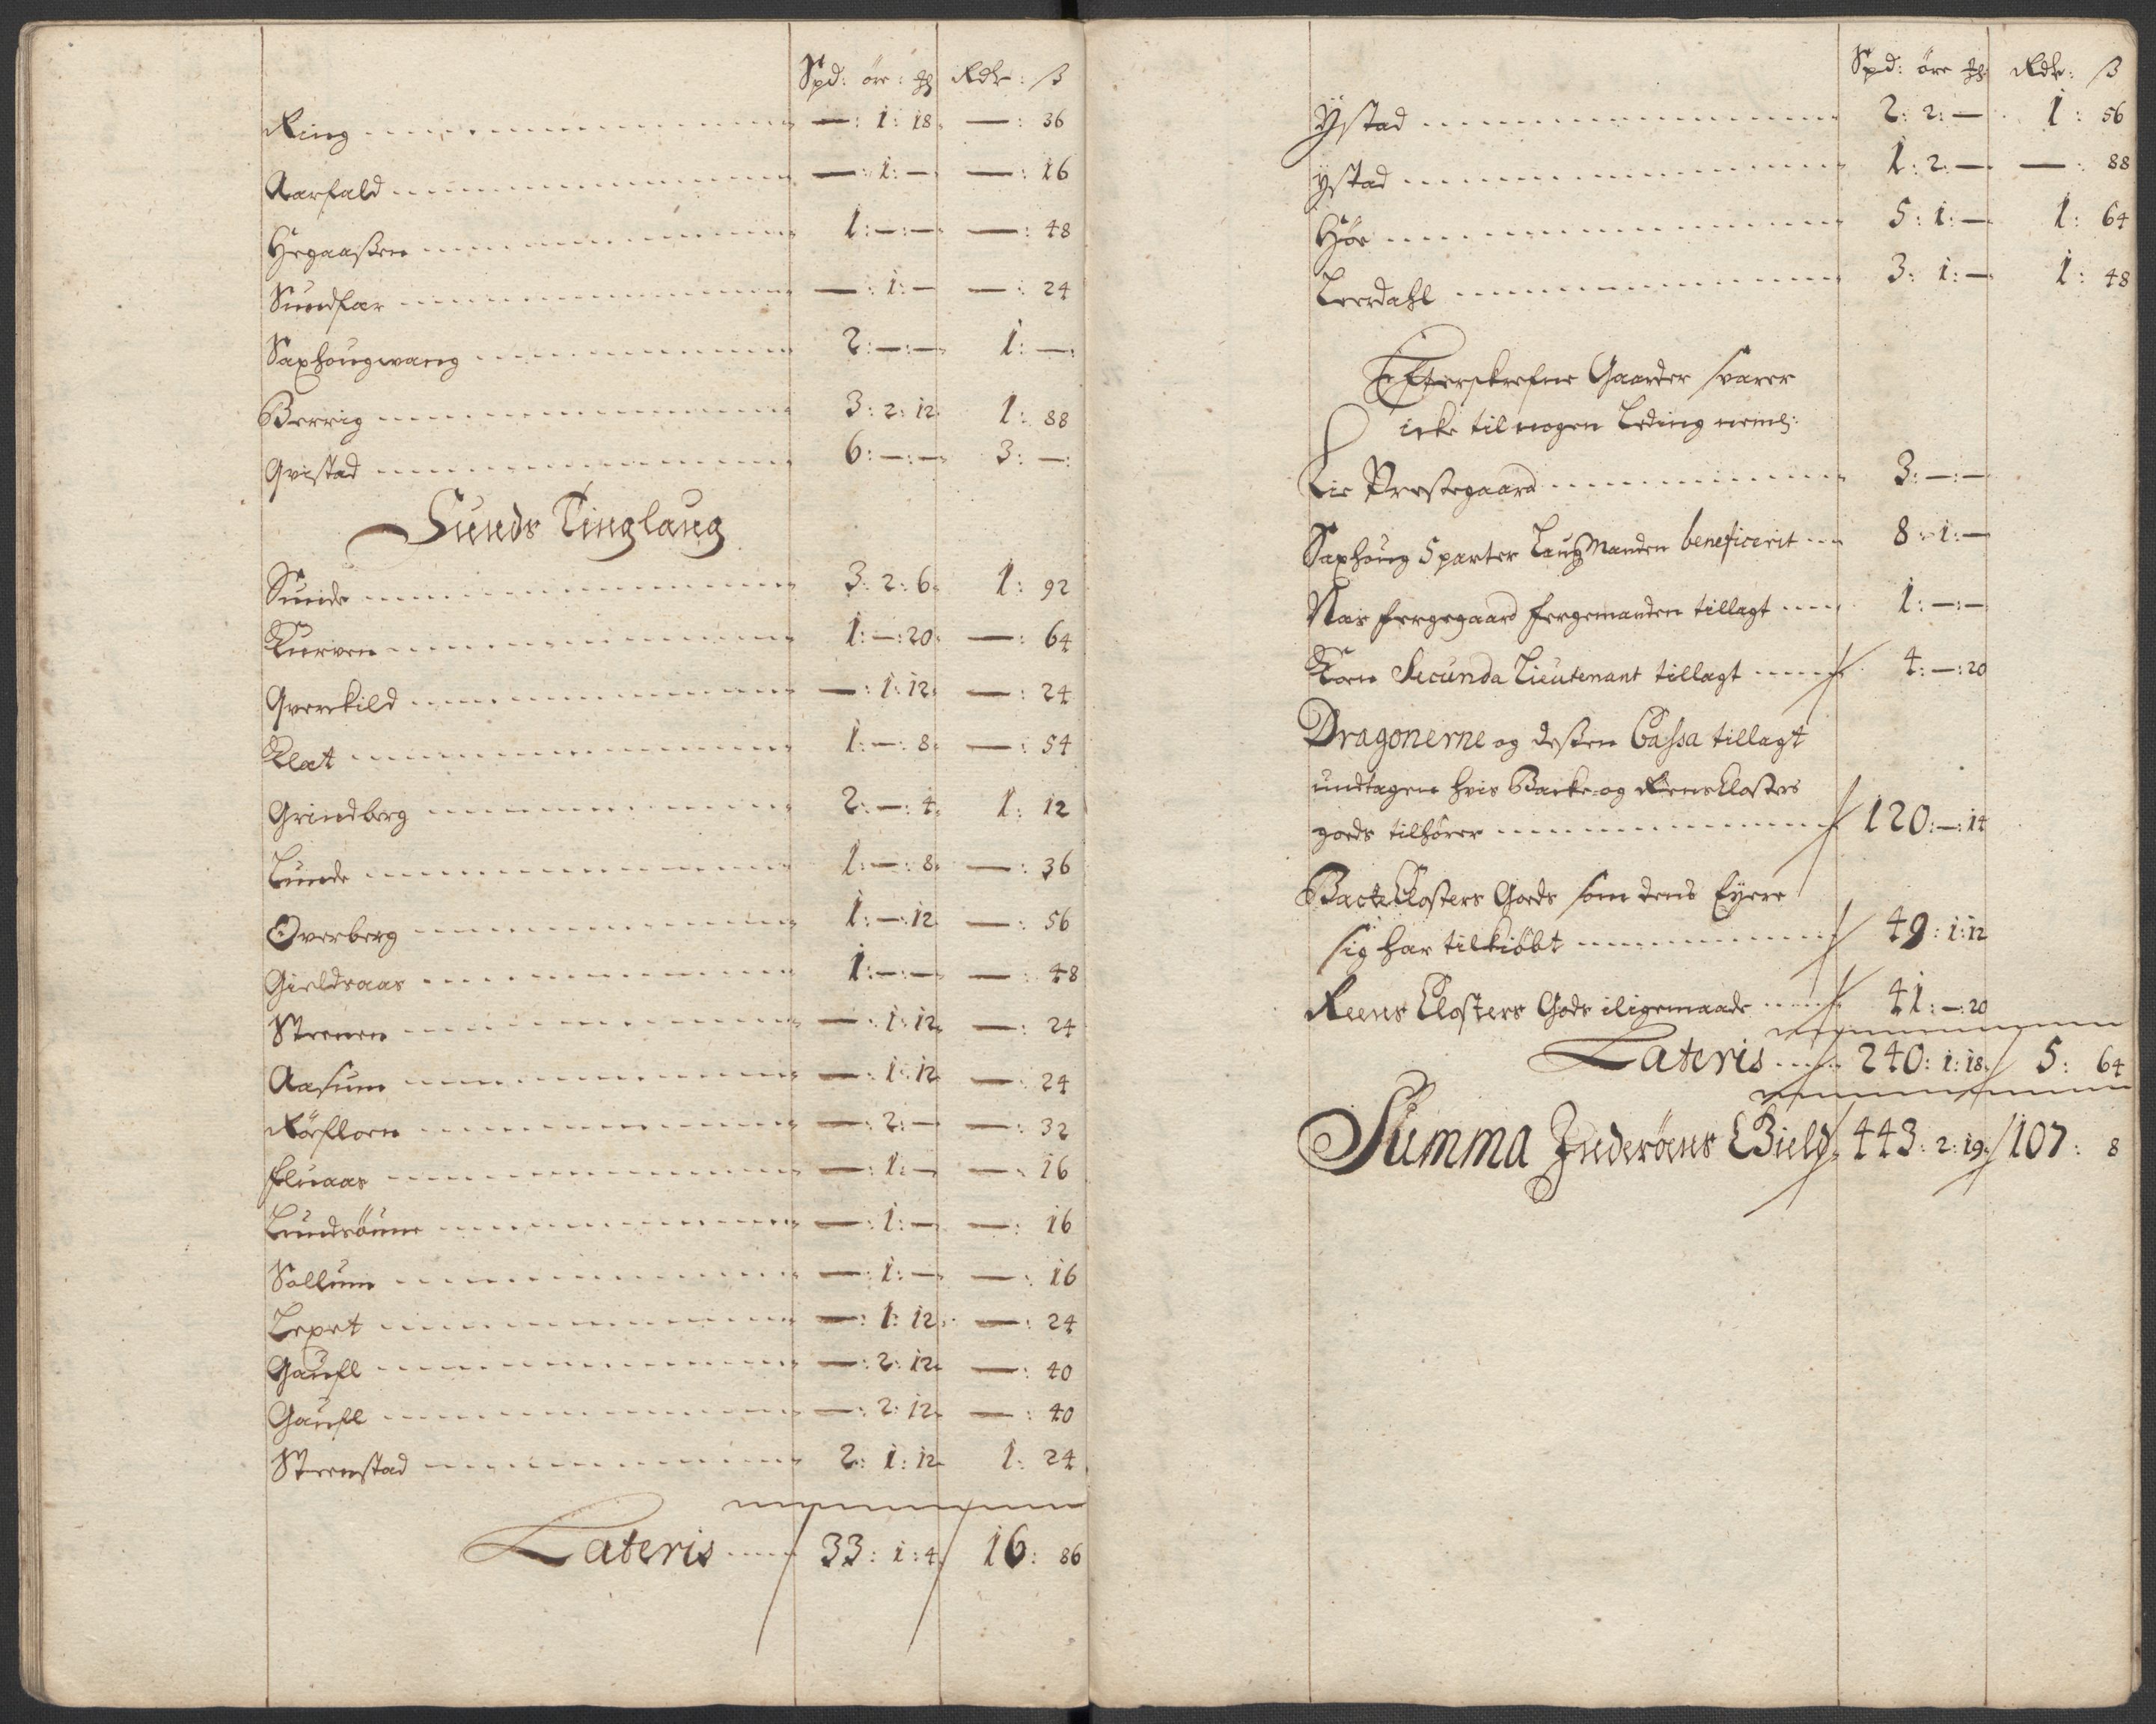 Spd: öre: ₰ Rdr: ß
Ring — : 1 : 18 — : 36
Aarfald — : 1 : — — : 16
Hegaaßen 1 : — : — — : 48
Sundfær — : 1 : — — : 24
Saxhougwang 2 : — : — 1 : — :
Berrig 3 : 2 : 12 1 : 88
Qvistad 6 : — : — 3 : — :
Sunds Tinglaug
Sunde 3 : 2 : 6 1 : 92
Kurven 1 : — : 20 — : 64
Qverkild — : 1 : 12 — : 24
Klæt 1 : — : 8 — : 54
Grindberg 2 : — : 4 1 : 12
Lunde 1 : — : 8 — : 36
Overberg 1 : — : 12 — : 56
Gieldsaas 1 : — : — — : 48
Strenen — : 1 : 12 — : 24
Aasum — : 1 : 12 — : 24
Rörfloen — : 2 : — — : 32
Fluaas — : 1 : — — : 16
Lundsöune — : 1 : — — : 16
Sollum — : 1 : — — : 16
Lexet — : 1 : 12 — : 24
Gaufl — : 2 : 12 — : 40
Gaufl — : 2 : 12 — : 40
Steenstad 2 : 1 : 12 1 : 24
Lateris 33 : 1 : 4 16 : 86
Spd: öre ₰ Rdr: ß
Ystad 2 : 2 : — 1 : 56
Ystad 1 : 2 : — — : 88
Høe 5 : 1 : — 1 : 64
Leerdahl 3 : 1 : — 1 : 48
Efterskrefne Gaarder svarer
icke til nogen Leding neml:
Lie Prestegaard 3 : — : —
Saxhoug 5 parter LaugManden beneficerit 8 : 1 : —
Næs fergegaard fergemanden tillagt 1 : — : —
Koen Secunda Lieutenant tillagt 4 : — : 20
Dragonerne og deßen Cassa tillagt
undtagen hvis Backe- og Reens Closters
goeds tilhører 120 : — : 14
Backe Closters Goeds som dends Eyere
sig har tilkiöbt 49 : 1 : 12
Reens Closters Gods iligemaade 41 : — : 20
Lateris 240 : 1 : 18 5 : 64
Summa Inderöens Gield 443 : 2 : 19 107 : 8